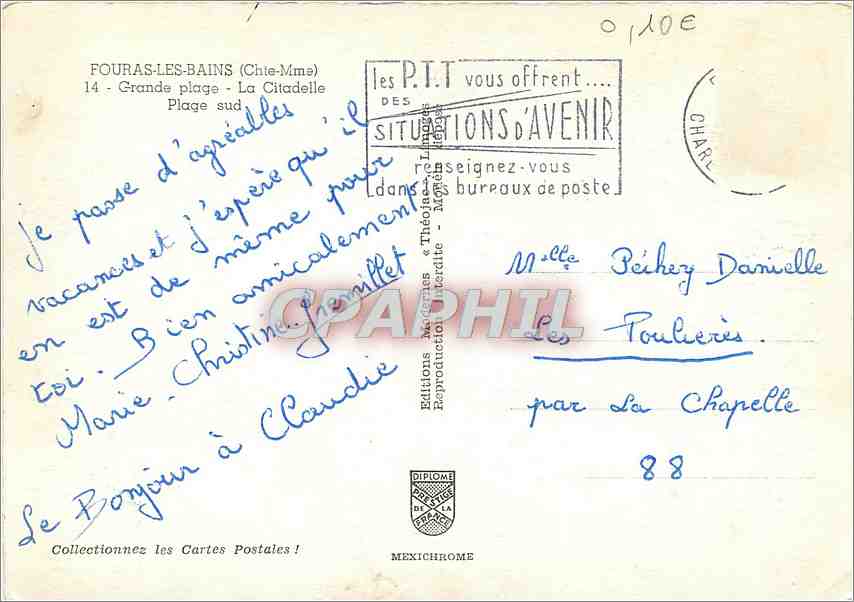 0,10€
FOURAS-LES-BAINS (Chte-Mme)
14 - Grande plage - La Citadelle
Plage sud
les P.T.T vous offrent....
DES
SITUATIONS D'AVENIR
renseignez-vous
dans les bureaux de poste
CHARE
Je passe d'agréables
vacances et j'espère qu'il
en est de même pour
toi. Bien amicalement
Marie-Christine Gremillet
Le Bonjour à Claudie
Editions Modernes « Théojac », Limoges
Reproduction Interdite - Modèle déposé
CPAPHIL
Melle Péchey Danielle
Les Poulières.
par La Chapelle
88
DIPLOME
PRESTIGE
DE LA
FRANCE
Collectionnez les Cartes Postales !
MEXICHROME